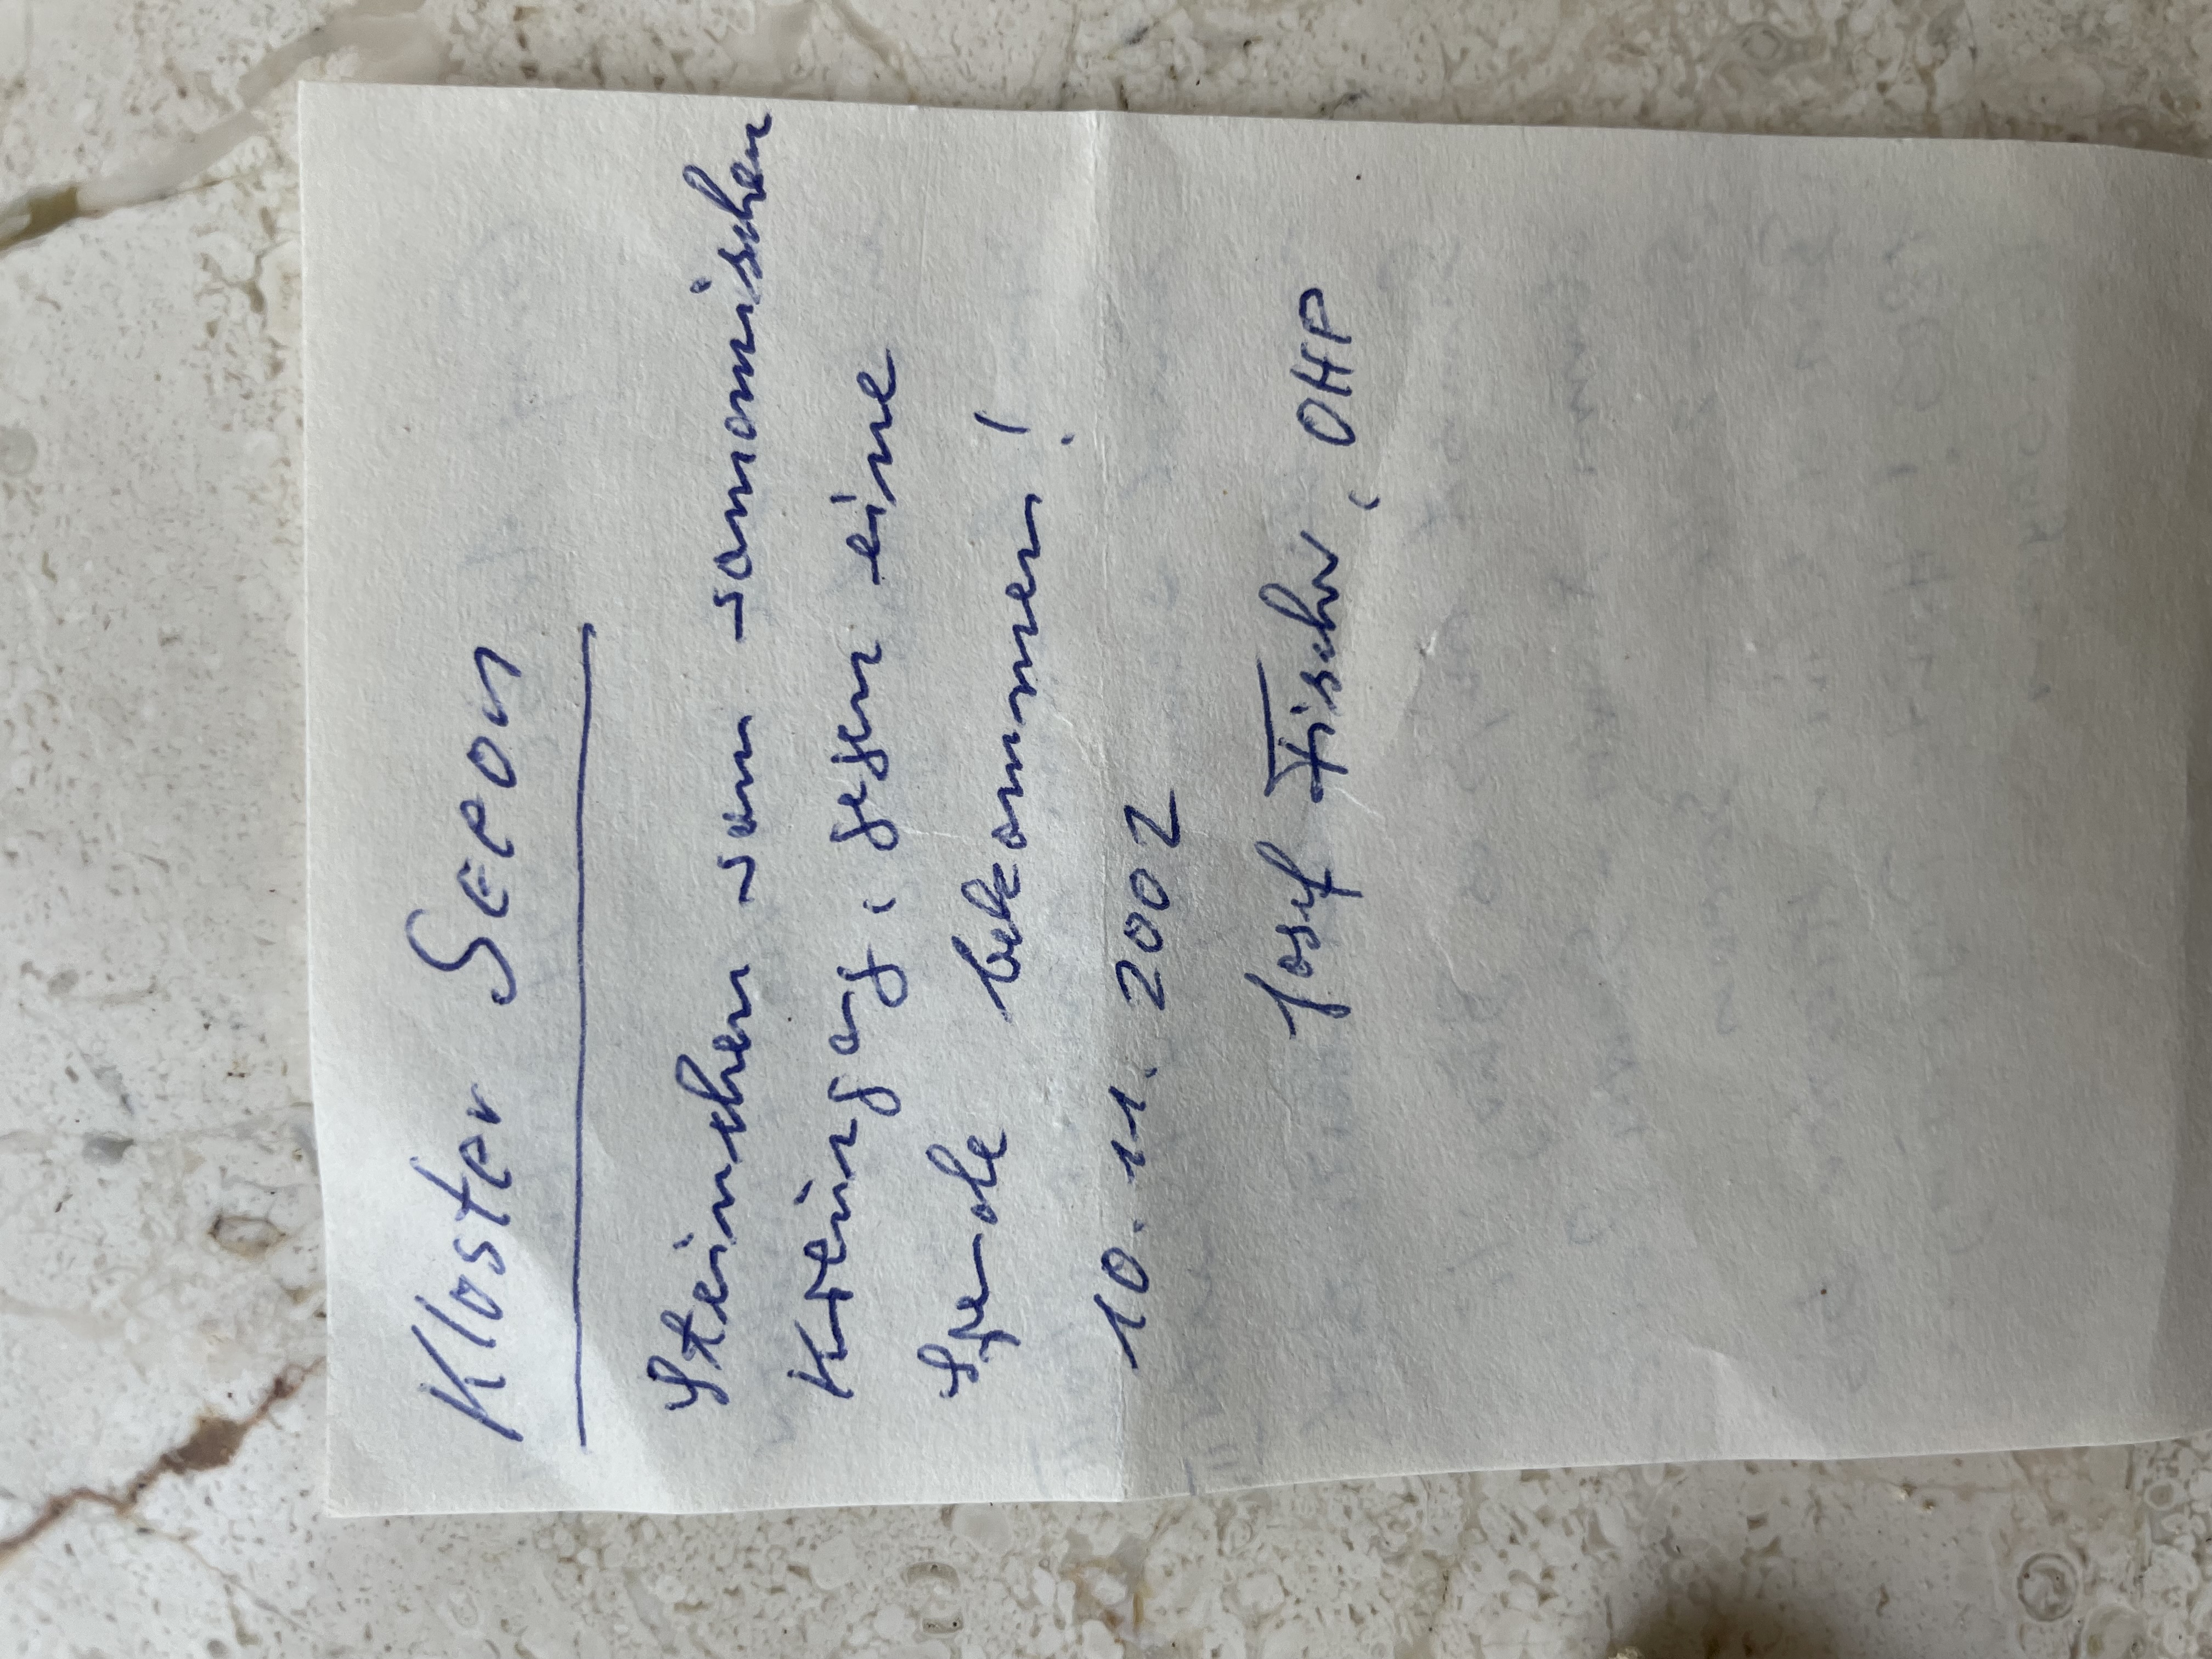 Kloster Seeon
Steinchen vom romanischen
Kreuzgang, gegen eine
Spende bekommen!
10. 11. 2002
Josef Fischer, OHP